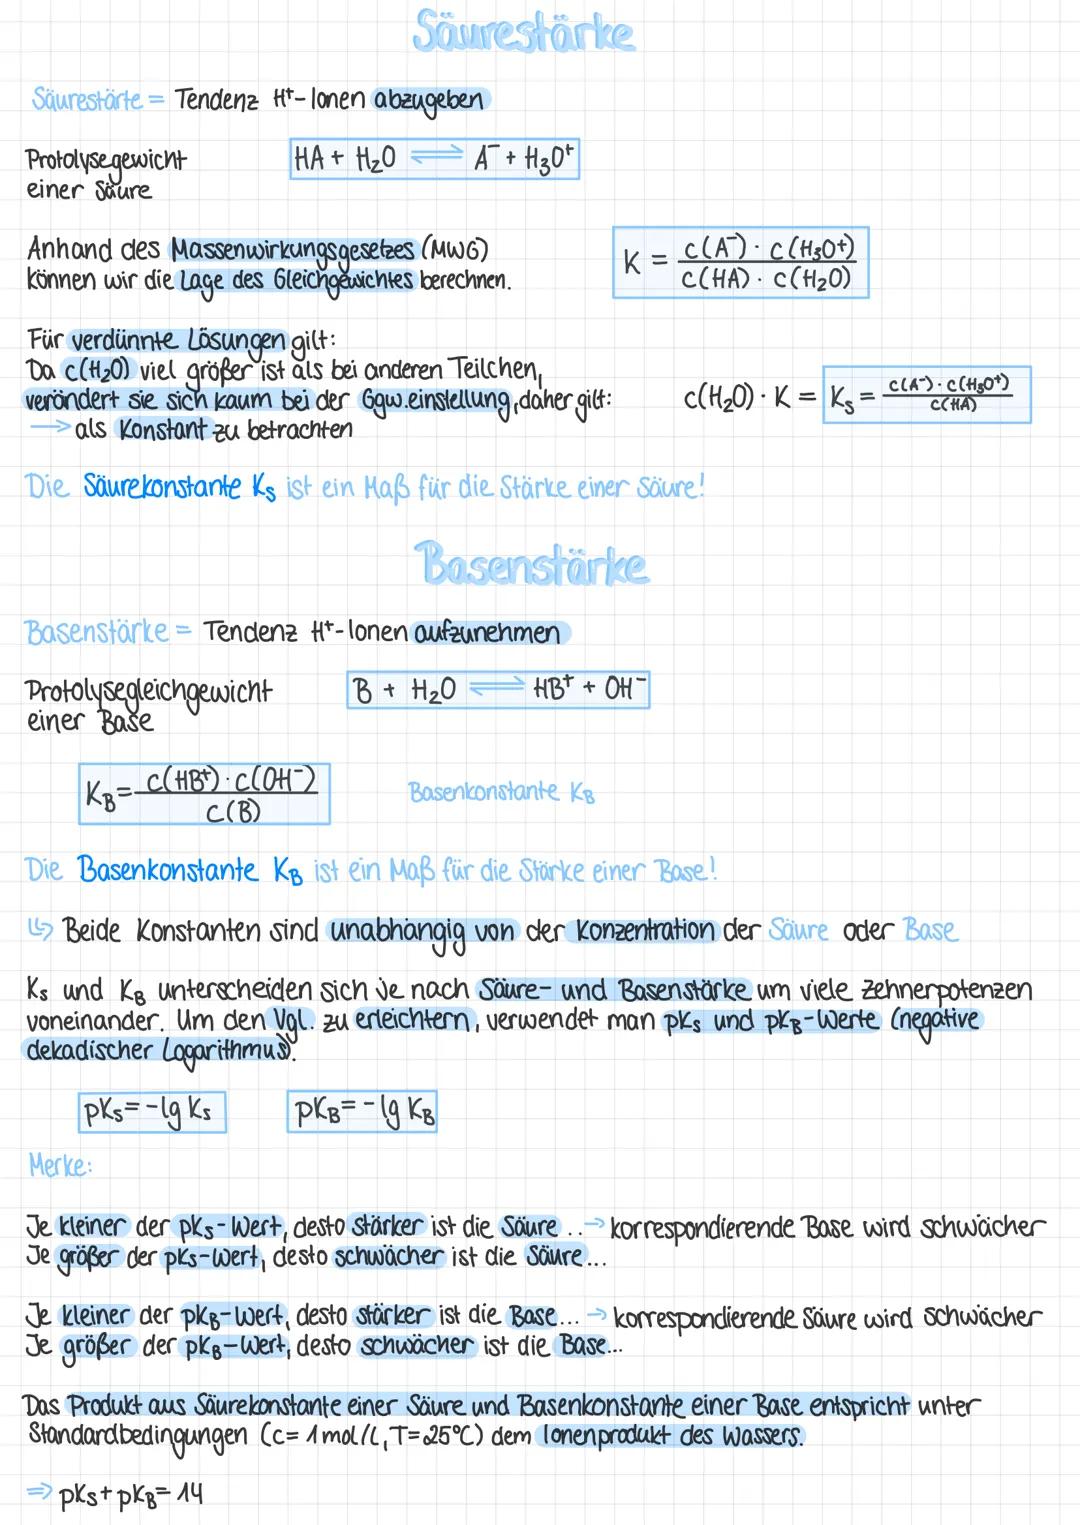 Säurestärke
Säurestärte = Tendenz H⁺-Ionen abzugeben
Protolysegewicht
einer Säure
HA + H₂O ⇌ A⁻ + H₃O⁺
Anhand des Massenwirkungsgesetzes (MWG)
können wir die Lage des Gleichgewichtes berechnen.
K = c(A⁻) · c(H₃O⁺) / c(HA) · c(H₂O)
Für verdünnte Lösungen gilt:
Da c(H₂O) viel größer ist als bei anderen Teilchen,
verändert sie sich kaum bei der Ggw.einstellung, daher gilt:
→ als Konstant zu betrachten
c(H₂O) · K = Kₛ = c(A⁻) · c(H₃O⁺) / c(HA)
Die Säurekonstante Kₛ ist ein Maß für die Stärke einer Säure!
Basenstärke
Basenstärke = Tendenz H⁺-Ionen aufzunehmen
Protolysegleichgewicht
einer Base
B + H₂O ⇌ HB⁺ + OH⁻
K_B = c(HB⁺) · c(OH⁻) / c(B)
Basenkonstante K_B
Die Basenkonstante K_B ist ein Maß für die Stärke einer Base!
↳ Beide Konstanten sind unabhängig von der Konzentration der Säure oder Base
Kₛ und K_B unterscheiden sich je nach Säure- und Basenstärke um viele Zehnerpotenzen
voneinander. Um den Vgl. zu erleichtern, verwendet man pKₛ und pK_B-Werte (negative
dekadischer Logarithmus).
pKₛ = -lg Kₛ
pK_B = -lg K_B
Merke:
Je kleiner der pKₛ-Wert, desto stärker ist die Säure ... → korrespondierende Base wird schwächer
Je größer der pKₛ-Wert, desto schwächer ist die Säure...
Je kleiner der pK_B-Wert, desto stärker ist die Base... → korrespondierende Säure wird schwächer
Je größer der pK_B-Wert, desto schwächer ist die Base...
Das Produkt aus Säurekonstante einer Säure und Basenkonstante einer Base entspricht unter
Standardbedingungen (c= 1mol/L, T=25°C) dem Ionenprodukt des Wassers.
⇒ pKₛ + pK_B = 14